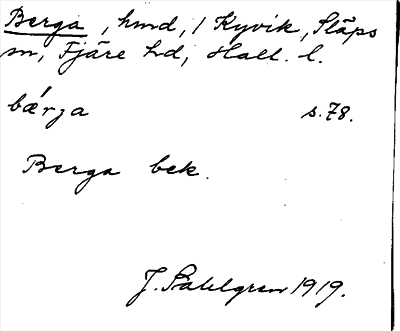 Berga, hmd, / Kyvik, Släps
sn, Fjäre hd, Hall. l.
bǽrja s.78.
Berga bek.
J. Sahlgren 1919.